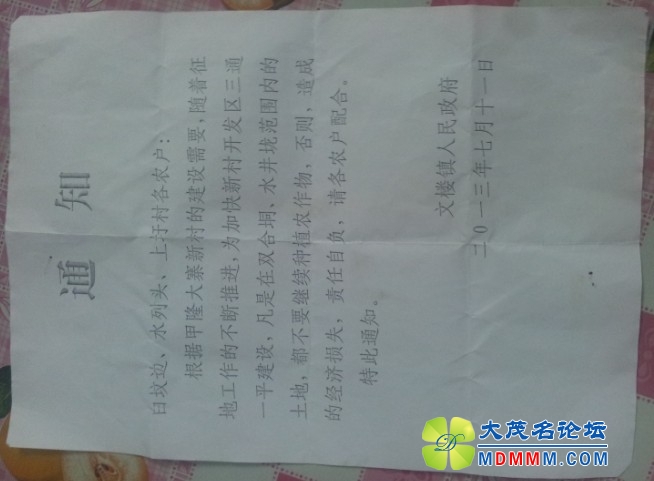 通 知
白坟边、水列头、上圩村各农户：
根据甲隆大寨新村的建设需要，随着征
地工作的不断推进，为加快新村开发区三通
一平建设，凡是在双合垌、水井垅范围内的
土地，都不要继续种植农作物，否则，造成
的经济损失，责任自负，请各农户配合。
特此通知。
文楼镇人民政府
二0一三年七月十一日
大茂名论坛
MDMMM.COM